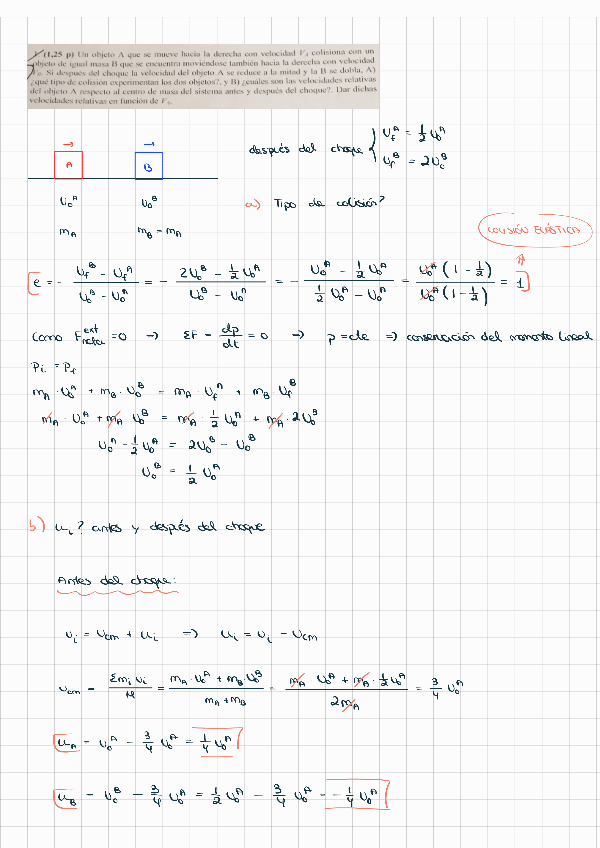 (1,25 p) Un objeto A que se mueve hacia la derecha con velocidad V₀ colisiona con un
objeto de igual masa B que se encuentra moviéndose también hacia la derecha con velocidad
Si después del choque la velocidad del objeto A se reduce a la mitad y la B se dobla, A)
¿qué tipo de colisión experimentan los dos objetos?, y B) ¿cuales son las velocidades relativas
del objeto A respecto al centro de masa del sistema antes y después del choque?. Dar dichas
velocidades relativas en función de V₀.
después del choque { U_f^A = 1/2 U₀^A
U_f^B = 2U₀^B
→ →
A B
U₀^A U₀^B
a) Tipo de colisión?
m_A m_B = m_A
COLISIÓN ELÁSTICA
e = - (U_f^B - U_f^A)/(U₀^B - U₀^A) = - (2U₀^B - 1/2 U₀^A)/(U₀^B - U₀^A) = - (U₀^A - 1/2 U₀^A)/(1/2 U₀^A - U₀^A) = (U₀^A (1 - 1/2))/(U₀^A (1 - 1/2)) = 1
Como F_neta^ext = 0 → ΣF = dp/dt = 0 → p = cte ⇒ conservación del momento lineal
P_i = P_f
m_A · U₀^A + m_B · U₀^B = m_A · U_f^A + m_B U_f^B
m_A · U₀^A + m_A U₀^B = m_A · 1/2 U₀^A + m_A · 2U₀^B
U₀^A - 1/2 U₀^A = 2U₀^B - U₀^B
U₀^B = 1/2 U₀^A
b) u_i? antes y después del choque
Antes del choque:
v_i = v_cm + u_i ⇒ u_i = v_i - v_cm
v_cm = Σm_i v_i / M = (m_A · U₀^A + m_B · U₀^B)/(m_A + m_B) = (m_A U₀^A + m_A · 1/2 U₀^A)/(2m_A) = 3/4 U₀^A
u_A = U₀^A - 3/4 U₀^A = 1/4 U₀^A
u_B = U₀^B - 3/4 U₀^A = 1/2 U₀^A - 3/4 U₀^A = - 1/4 U₀^A